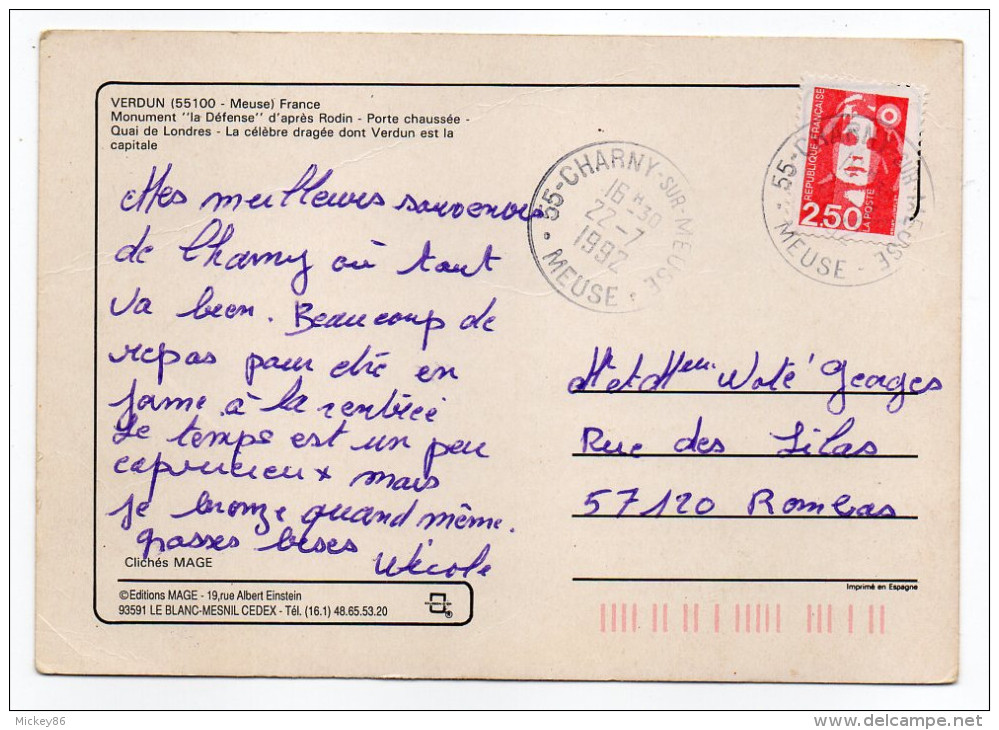 VERDUN (55100 - Meuse) France
Monument "la Défense" d'après Rodin - Porte chaussée -
Quai de Londres - La célèbre dragée dont Verdun est la
capitale
Mes meilleurs souvenirs
de Charny où tout
va bien. Beaucoup de
repas pour être en
forme à la rentrée
Le temps est un peu
capricieux mais
je bronze quand même.
grosses bises
Nicole
Clichés MAGE
©Editions MAGE - 19, rue Albert Einstein
93591 LE BLANC-MESNIL CEDEX - Tél. (16.1) 48.65.53.20
®
55-CHARNY-SUR-MEUSE
16 H 30
22 -7
1992
MEUSE
55-CHARNY-SUR-MEUSE
MEUSE
REPUBLIQUE FRANÇAISE
2.50
LA POSTE
Mr et Mme Woté Georges
Rue des Lilas
57120 Rombas
Imprimé en Espagne
Mickey86
delcampe.net